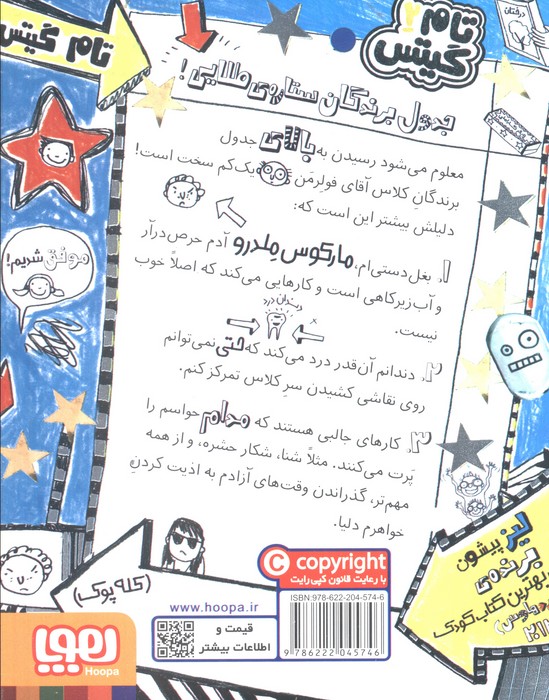 تام گیتس
تام
گیتس
درختان
جدول برندگان ستاره‌ی طلایی!
معلوم می‌شود رسیدن به بالای جدول
برندگانِ کلاس آقای فولرمَن یک‌کم سخت است!
دلیلش بیشتر این است که:
موفق شدیم!
۱. بغل‌دستی‌ام، مارکوس مِلدرو آدم حرص‌درآر
و آب‌زیرکاهی است و کارهایی می‌کند که اصلاً خوب
نیست.
دندان درد
۲. دندانم آن‌قدر درد می‌کند که حتی نمی‌توانم
روی نقاشی کشیدن سرِ کلاس تمرکز کنم.
۳. کارهای جالبی هستند که مدام حواسم را
پَرت می‌کنند. مثلاً شنا، شکار حشره، و از همه
مهم‌تر، گذراندن وقت‌های آزادم به اذیت کردنِ
خواهرم دلیا.
(کله پوک)
لیز پیشون
برنده‌ی
بهترین کتاب کودک
۲۰۱۲
copyright
با رعایت قانون کپی‌رایت
ISBN: 978-622-204-574-6
9 786222 045746
www.hoopa.ir
قیمت و
اطلاعات بیشتر
هوپا
Hoopa